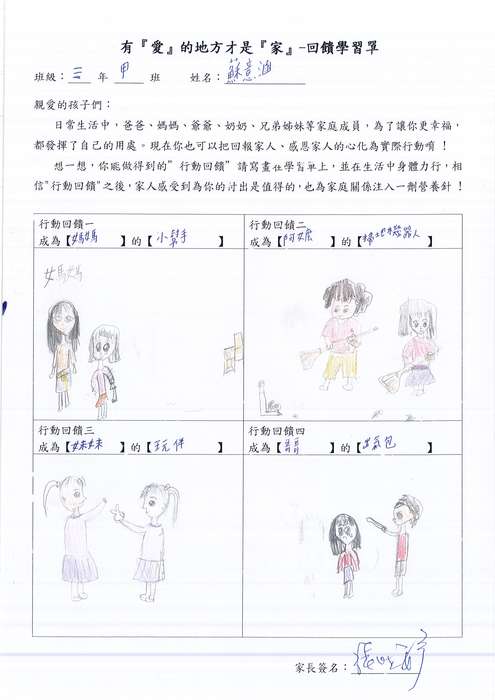 有『愛』的地方才是『家』-回饋學習單
班級：三 年 甲 班 姓名：蘇意涵
親愛的孩子們：
日常生活中，爸爸、媽媽、爺爺、奶奶、兄弟姊妹等家庭成員，為了讓你更幸福，
都發揮了自己的用處。現在你也可以把回報家人、感恩家人的心化為實際行動唷！
想一想，你能做得到的"行動回饋"請寫畫在學習單上，並在生活中身體力行，相
信"行動回饋"之後，家人感受到為你的付出是值得的，也為家庭關係注入一劑營養針！
行動回饋一
成為【媽媽】的【小幫手】
媽媽
行動回饋二
成為【阿嬤】的【掃地機器人】
行動回饋三
成為【妹妹】的【玩伴】
行動回饋四
成為【哥哥】的【出氣包】
家長簽名：